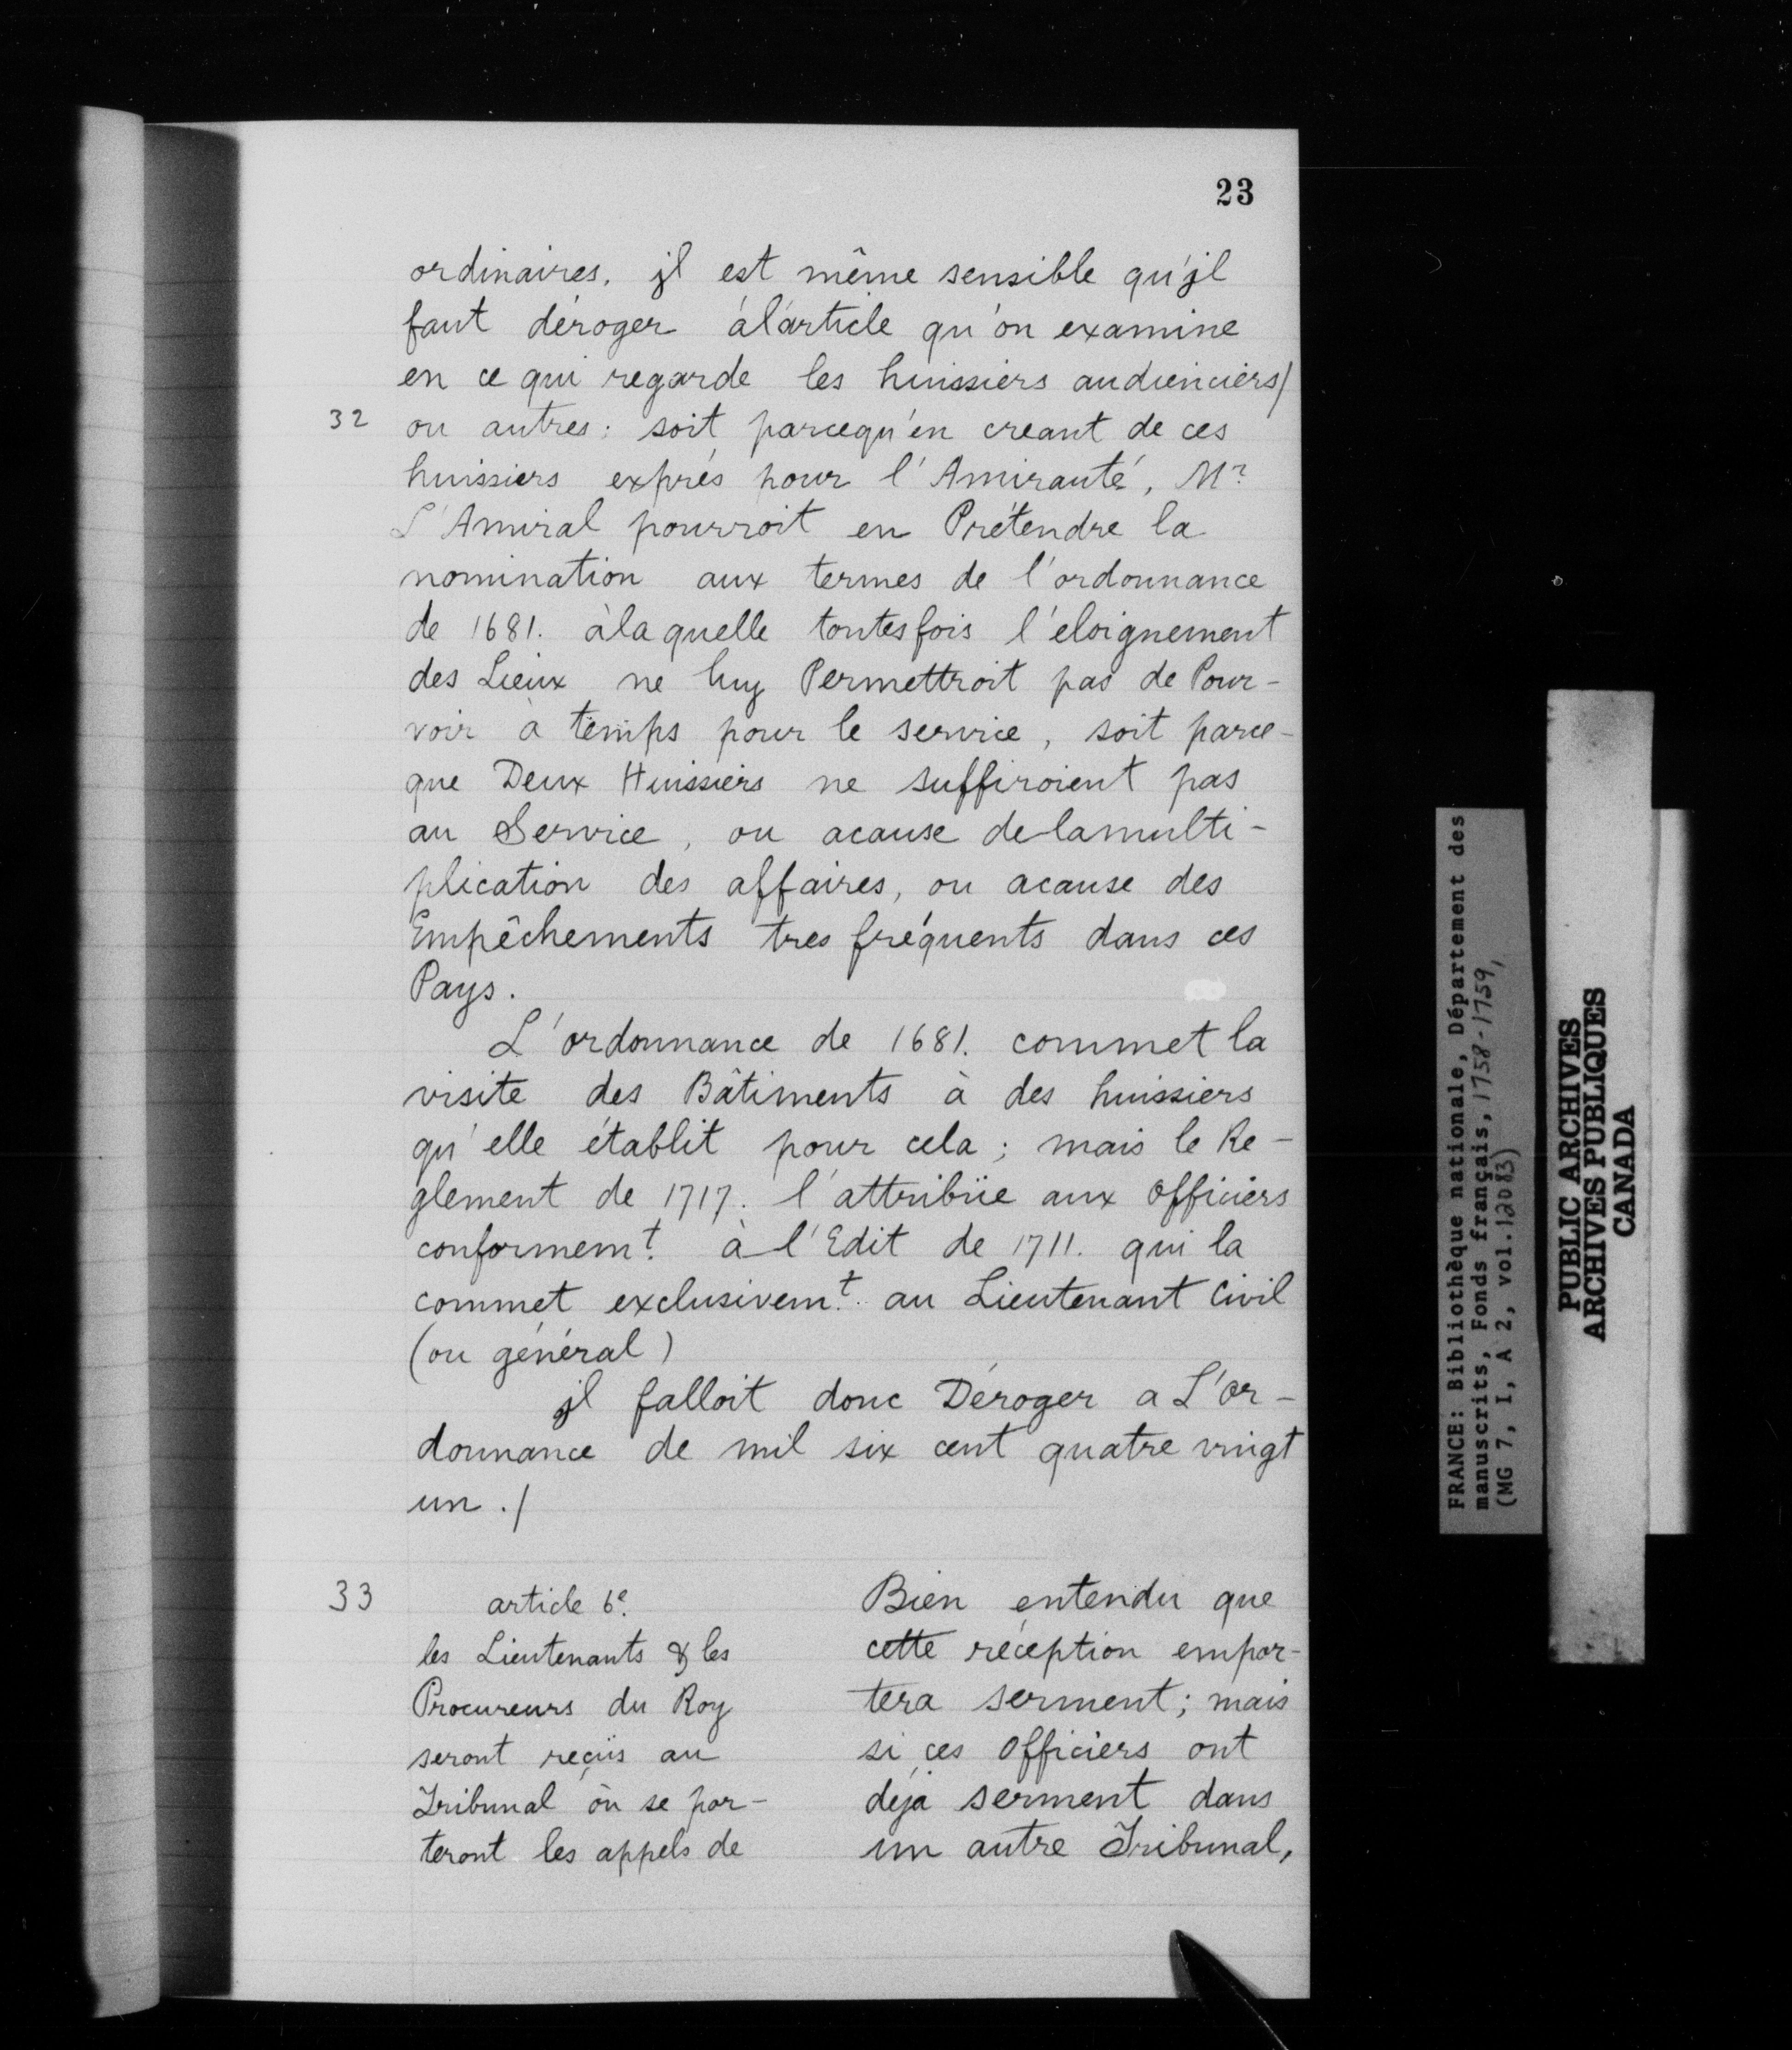 23
ordinaires. jl est même sensible qu'jl
faut déroger àl'article qu'on examine
en ce qui regarde les huissiers audienciers/
32 ou autres: soit parcequ'en creant de ces
huissiers exprés pour l'Amirauté, Mr
L'Amiral pourroit en Prétendre la
nomination aux termes de l'ordonnance
de 1681. àlaquelle toutesfois l'eloignement
des Lieux ne luy Permettroit pas de Pour-
voir à temps pour le service, soit parce-
que Deux Huissiers ne suffiroient pas
au Service, ou acause delamulti-
plication des affaires, ou acause des
Empêchements tres fréquents dans ces
Pays.
L'ordonnance de 1681. commet la
visite des Bâtiments à des huissiers
qu'elle établit pour cela; mais le Re-
glement de 1717. l'attribüe aux officiers
conformemt. à l'Edit de 1711. qui la
commet exclusivemt. au Lieutenant Civil
(ou général)
jl falloit donc Déroger a L'or-
donnance de mil six cent quatre vingt
un ./
33 article 6e.
les Lieutenants & les
Procureurs du Roy
seront reçüs au
Tribunal où se por-
teront les appels de
Bien entendu que
cette réception empor-
tera serment; mais
si ces officiers ont
déja serment dans
un autre Tribunal,
FRANCE: Bibliothèque nationale, Département des
manuscrits, Fonds français, 1758-1759,
(MG 7, I, A 2, vol. 12083)
PUBLIC ARCHIVES
ARCHIVES PUBLIQUES
CANADA